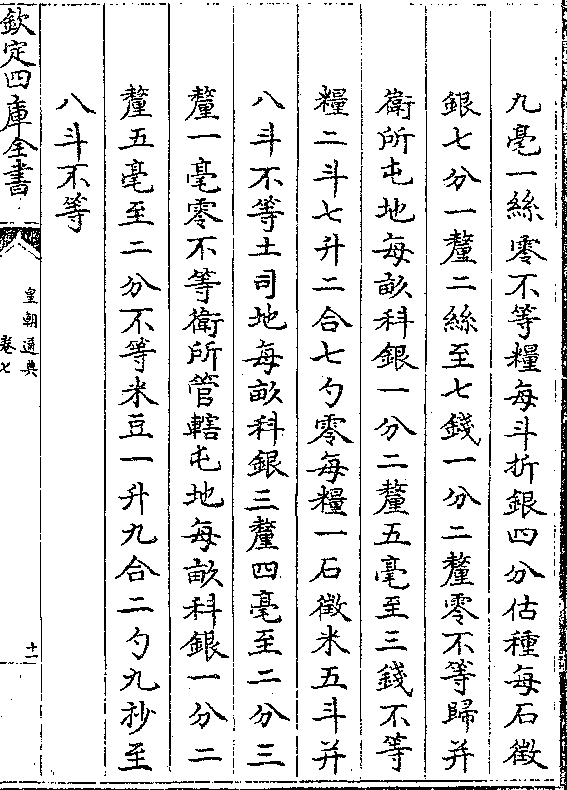 九毫一絲零不等糧每斗折銀四分估種每石徵
銀七分一釐二絲至七錢一分二釐零不等歸并
衛所屯地每畝科銀一分二釐五毫至三錢不等
糧二斗七升二合七勺零每糧一石徵米五斗并
八斗不等土司地每畝科銀三釐四毫至二分三
釐一毫零不等衛所管轄屯地每畝科銀一分二
釐五毫至二分不等米豆一升九合二勺九抄至
八斗不等
欽定四庫全書
皇朝通典
卷七
十一